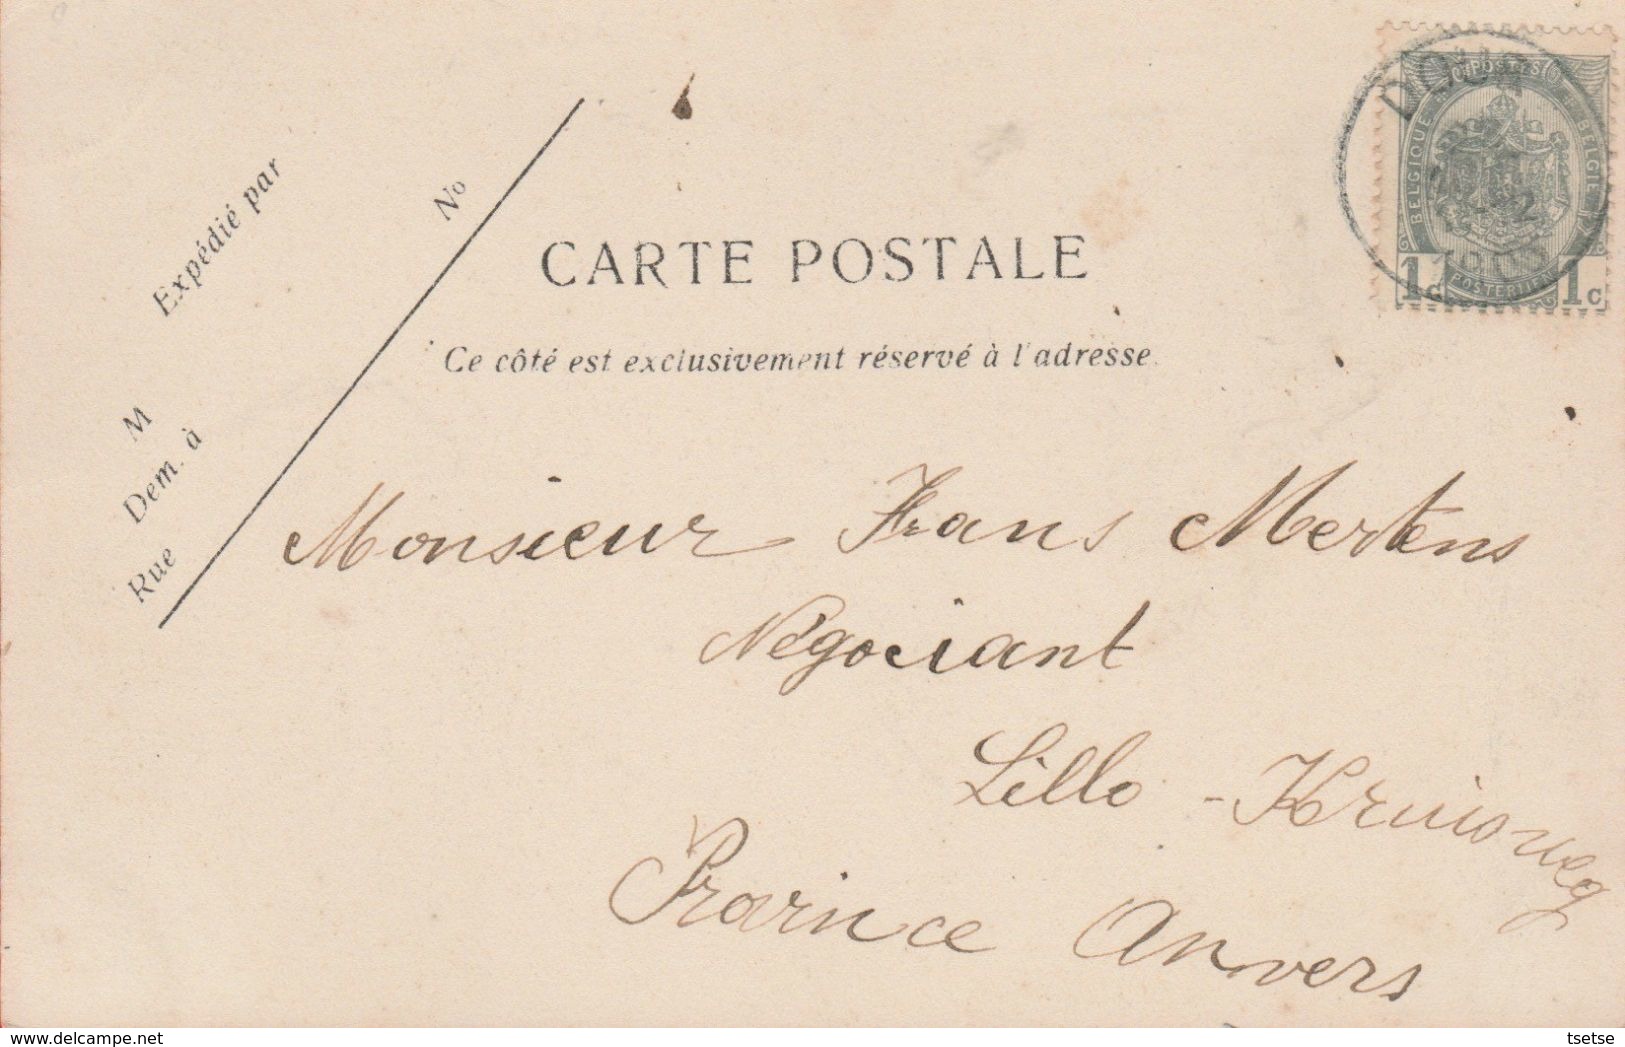 Expédié par
M
Dem. à
Rue
No
CARTE POSTALE
Ce côté est exclusivement réservé à l'adresse.
POSTES
BELGIQUE
BELGIE
DOUR
1905
1c POSTERIJEN 1c
Monsieur Frans Mertens
Négociant
Lillo - Kruisweg
Province Anvers
tsetse
www.delcampe.net